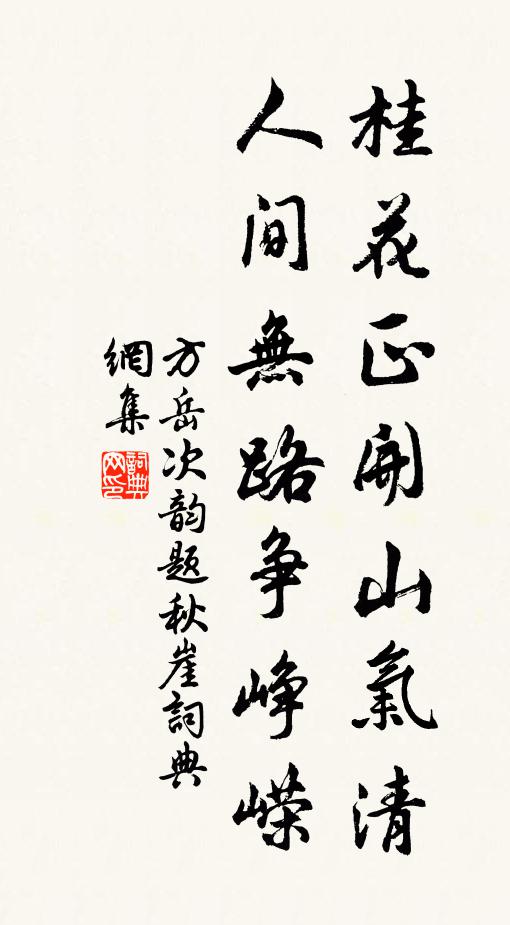 桂花正開山氣清
人间無路争峥嶸
方岳次韵题秋崖詞典
網集
詞典网印